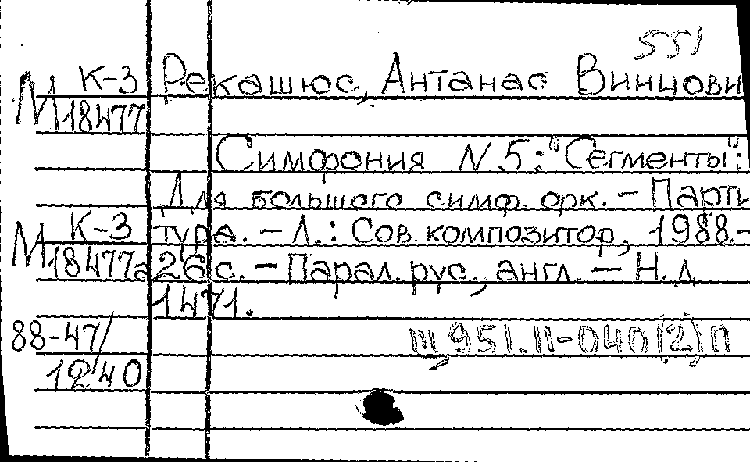 551
К-3 Рекашюс, Антанас Винцови
М 18477
Симфония N.5: "Сегменты":
Для большого симф. орк. – Парти
К-3 тура. – Л.: Сов. композитор, 1988. –
М 18477а 26 с. – Парал. рус., англ. – Н. д.
1471.
88-47/
1240
Ш 951.11-040(2)п